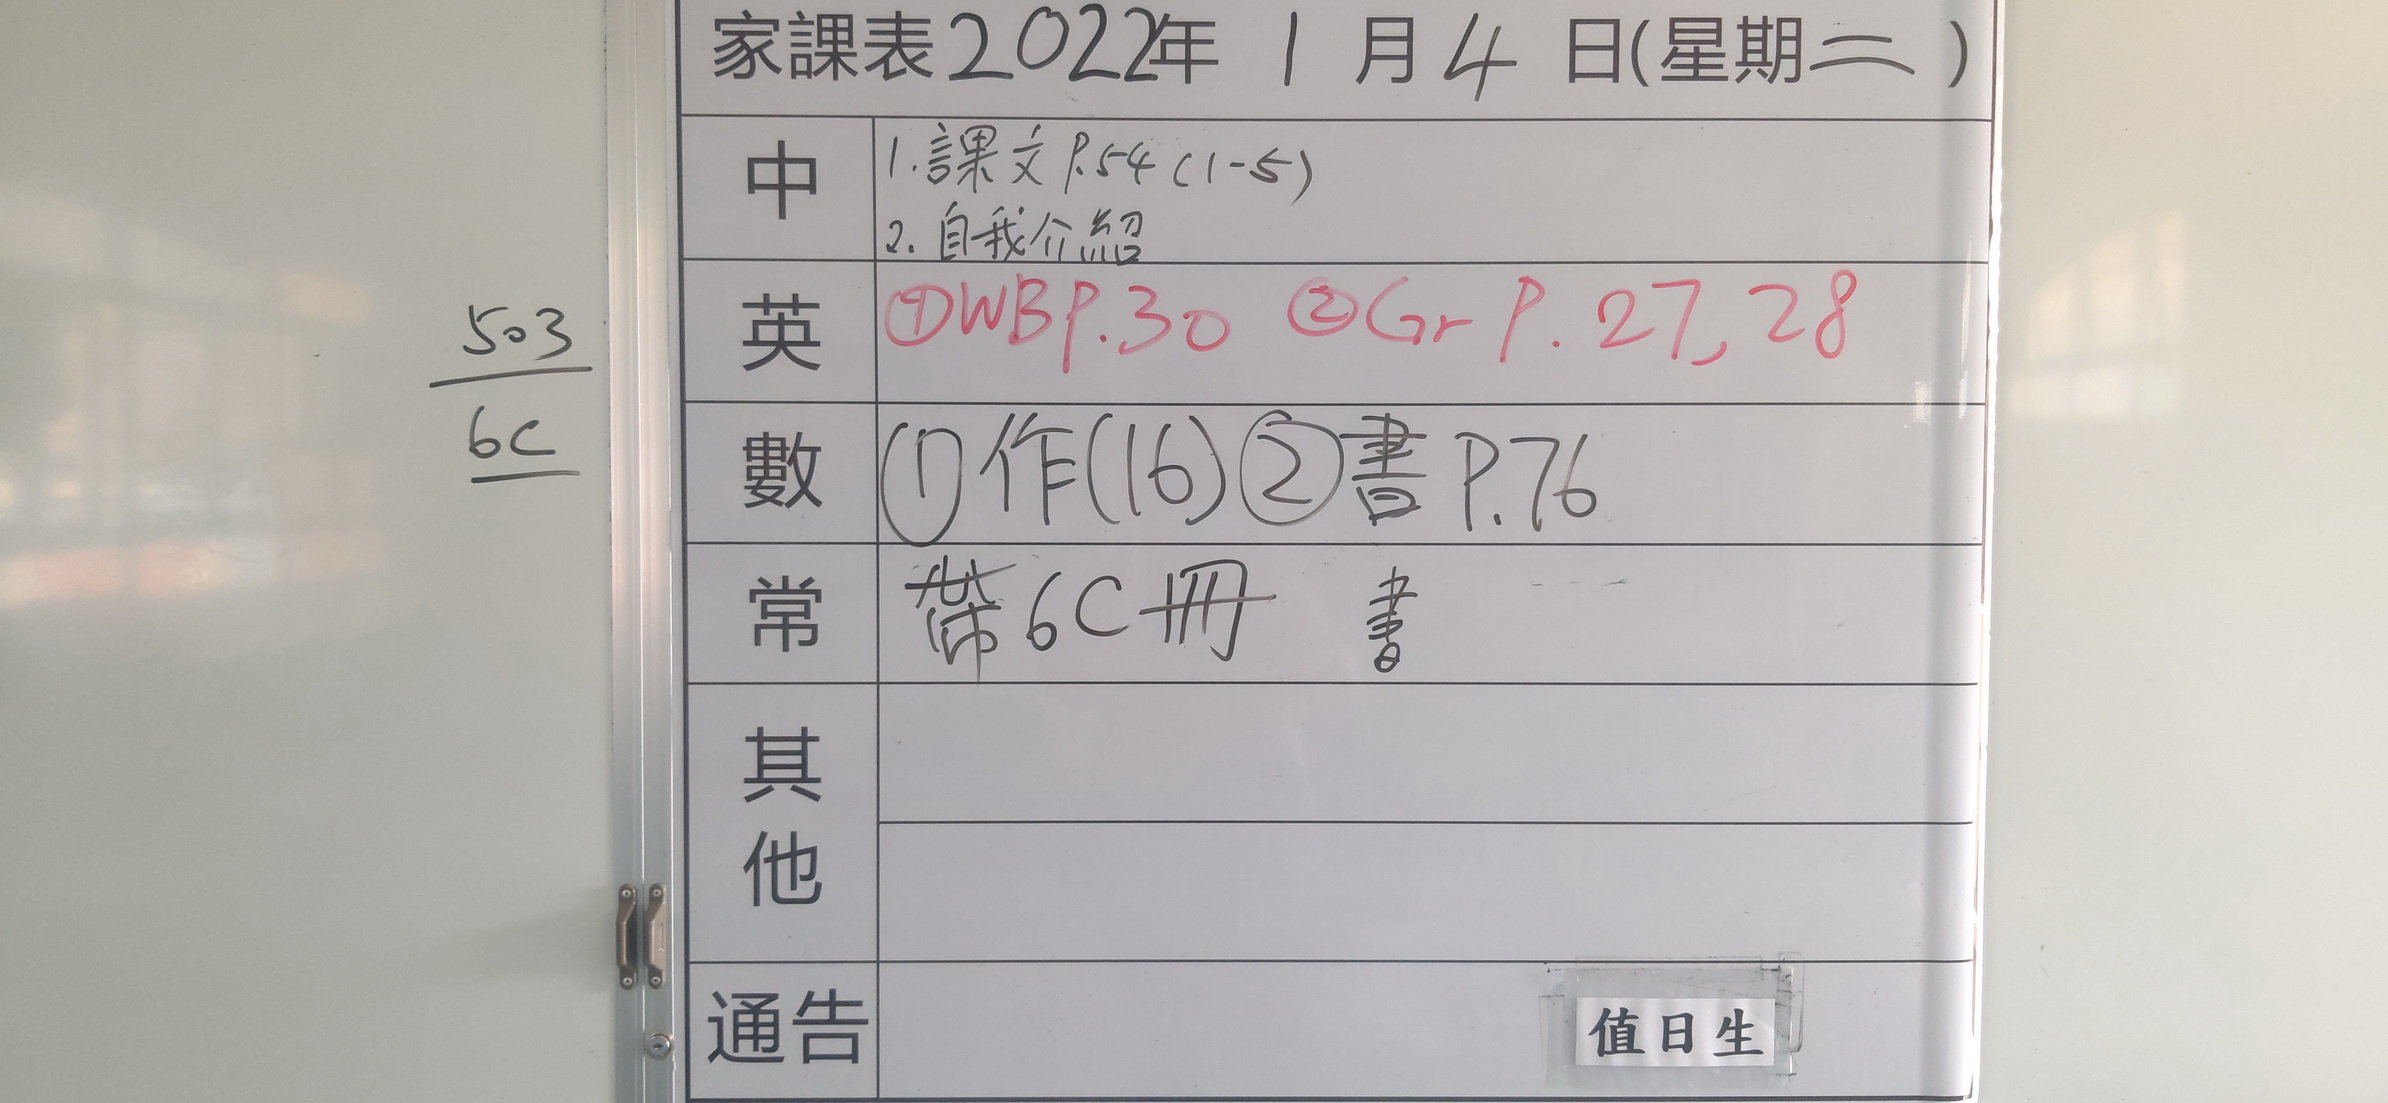 家課表2022年 1 月 4 日(星期二 )
中
1.課文P.54(1-5)
2.自我介紹
英
①WBP.30 ②Gr P.27,28
503
6C
數
①作(16)②書P.76
常
帶6C冊 書
其他
通告
值日生